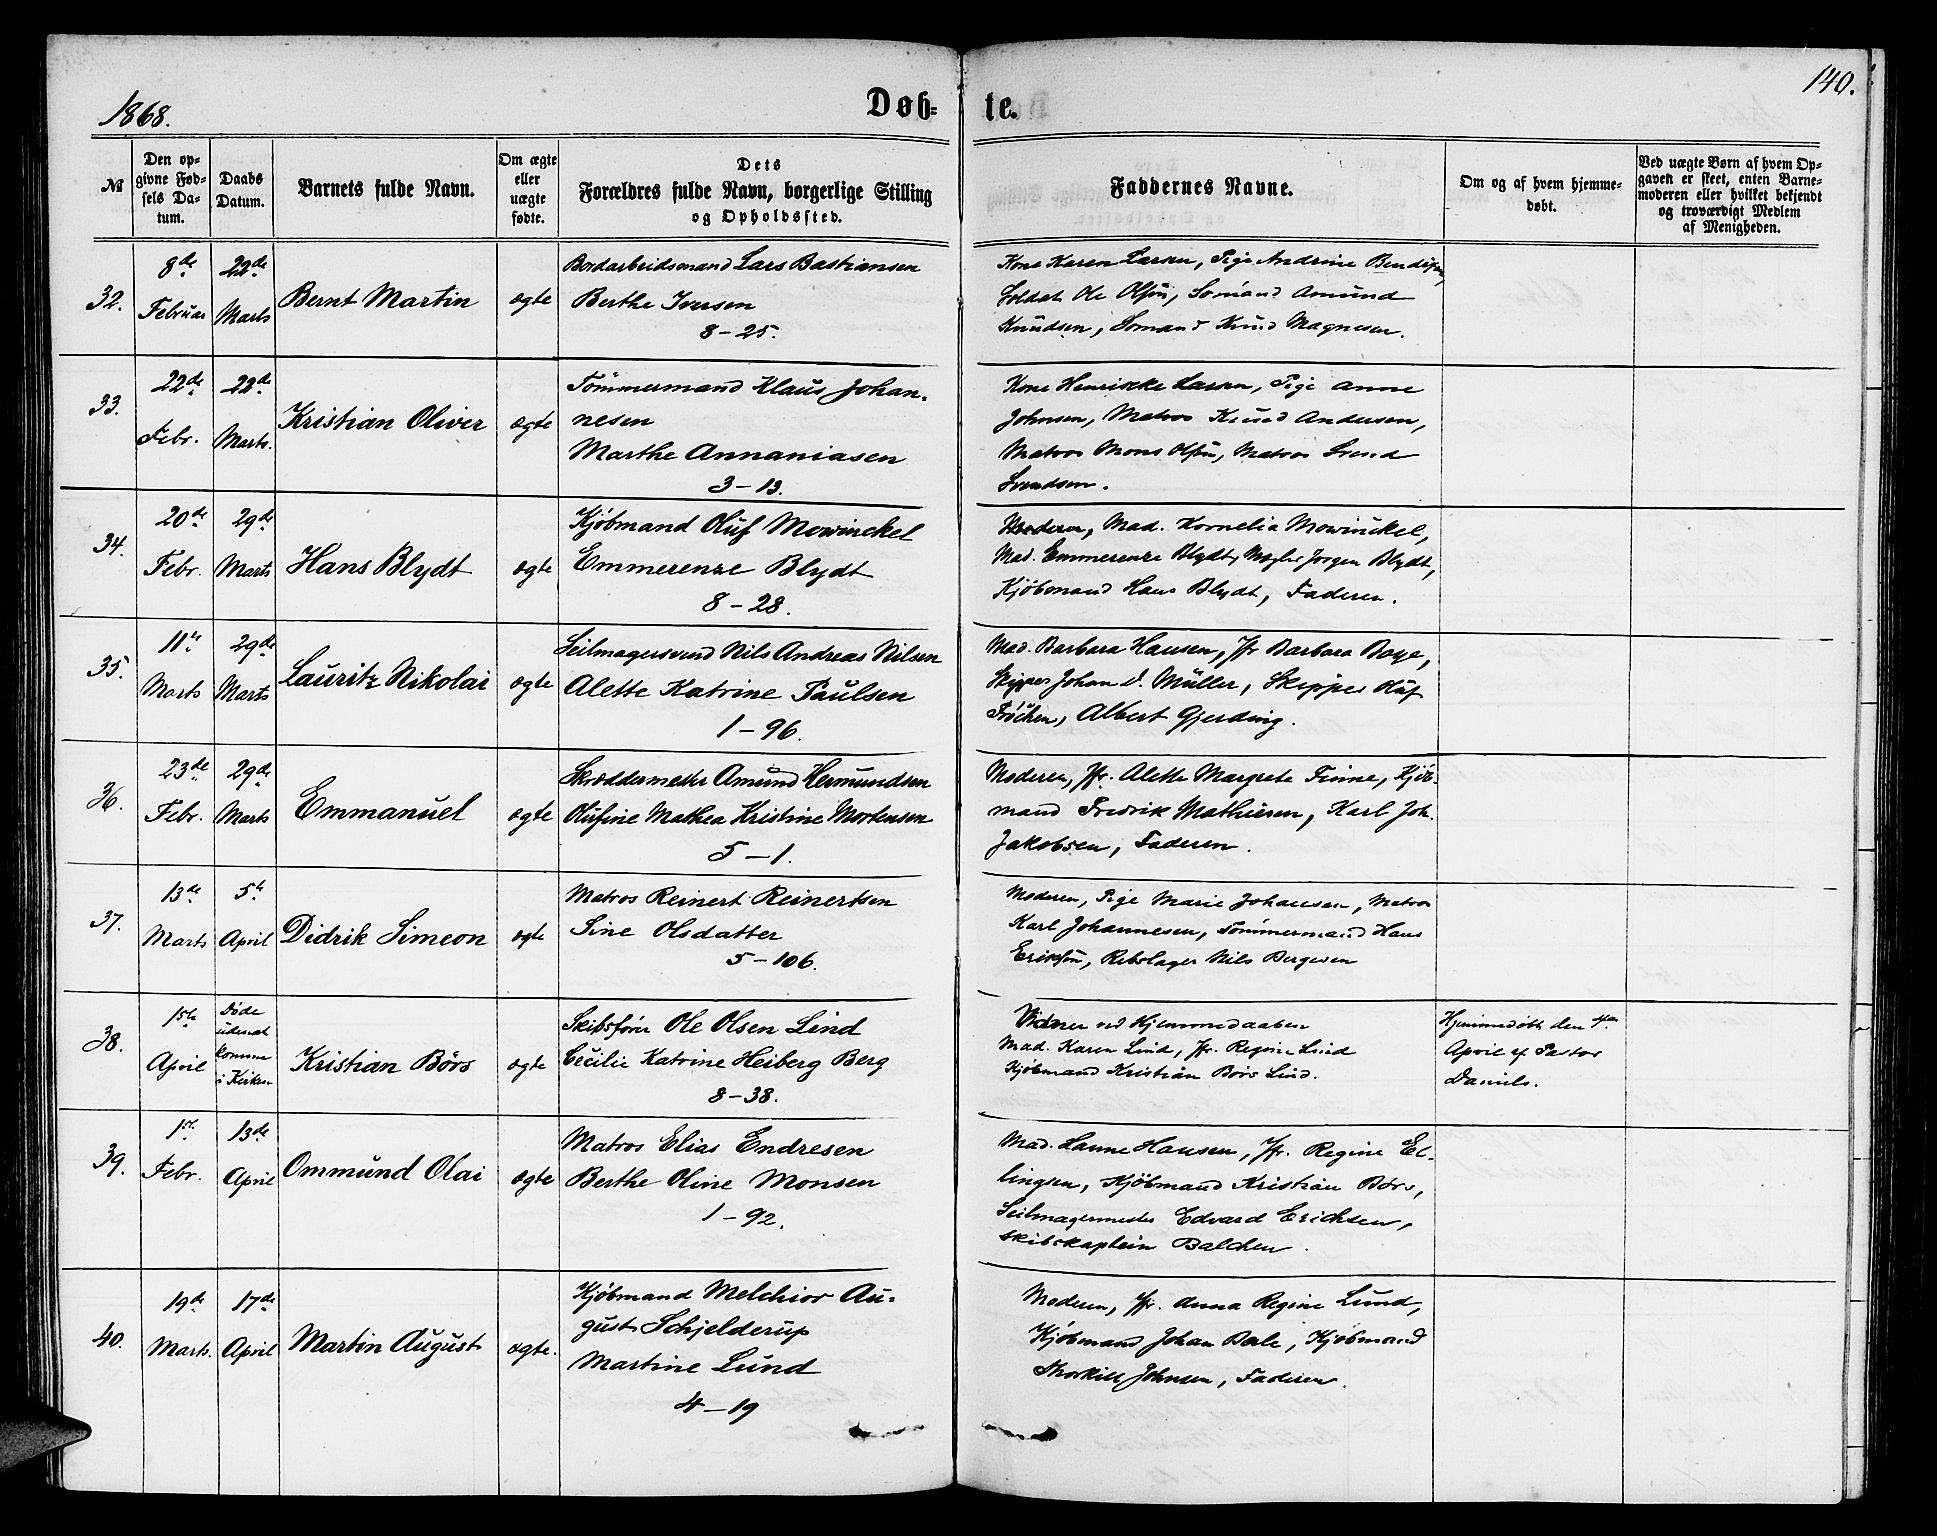 1868.
Døb-
te.
140.
№
Den op-
givne Fød-
sels Da-
tum.
Daabs
Datum.
Barnets fulde Navn.
Om ægte
eller
uægte
fødte.
Dets
Forældres fulde Navn, borgerlige Stilling
og Opholdssted.
Faddernes Navne.
Om og af hvem hjemme-
døbt.
Ved uægte Børn af hvem Op-
gaven er skeet, enten Barne-
moderen eller hvilket bekjendt
og troværdigt Medlem
af Menigheden.
32.
8de
Februar
22de
Marts
Bernt Martin
ægte
Bordarbeidsmand Lars Bastiansen
Berthe Iversen
8-25.
Kone Karen Larsen, Pige Andrine
Soldat Ole Olsen, Sømand Amund
Knudsen, Sømand Knud Magnesen.
33.
22de
Febr.
22de
Marts.
Kristian Oliver
ægte
Tömmermand Klaus Johan-
nesen
Marthe Annaniasen
3-13.
Kone Henrikke Larsen, Pige Anne
Johnsen, Matros Knud Andersen,
Matros Mons Olsen, Matros Svend
Svendsen.
34.
20de
Febr.
29de
Marts
Hans Blydt
ægte
Kjöbmand Oluf Mowinckel
Emmerenze Blydt
8-28.
Moderen, Mad. Kornelia Mowinckel,
Mad. Emmerenze Blydt, Mægler Jørgen Blydt,
Kjöbmand Hans Blydt, Faderen.
35.
11te
Marts
29de
Marts
Lauritz Nikolai
ægte
Seilmagersvend Nils Andreas Nilsen
Alette Katrine Paulsen
1-96.
Mad. Barbara Hansen, Jfr Barbara Boye,
Skipper Johan D. Müller, Skipper Oluf
Fröchen, Albert Gjerding.
36.
23de
Febr.
29de
Marts
Emmanuel
ægte
Skræddermester Amund Hermundsen
Olufine Mathea Kristine Mortensen
5-1.
Moderen, Jfr. Alette Margrete Finne, Kjöb-
mand Fredrik Mathiesen, Karl Joh.
Jakobsen, Faderen.
37.
13de
Marts
5te
April
Didrik Simeon
ægte
Matros Reinert Reinertsen
Sine Olsdatter
5-106.
Moderen, Pige Marie Johansen, Matros
Karl Johannesen, Tömmermand Hans
Eriksen, Rebslager Nils Bergesen
38.
1ste
April
Døde
uden at
komme
i Kirken
Kristian Börs
ægte
Skibsfører Ole Olsen Lind
Cecilie Katrine Heiberg Berg
8-38.
Vidner ved Hjemmedaaben
Mad. Karen Lind, Jfr. Regine Lind
Kjöbmand Kristian Börs Lind.
Hjemmedøbt den 4de
April af Pastor
Daniels.
39.
1ste
Febr.
13de
April
Ommund Olai
ægte
Matros Elias Endresen
Berthe Oline Monsen
1-92.
Mad. Hanne Hansen, Jfr. Regine El-
lingsen, Kjöbmand Kristian Börs,
Seilmagermester Edvard Erichsen,
Skibskaptein Balchen.
40.
19de
Marts.
17de
April
Martin August
ægte.
Kjöbmand Melchior Au-
gust Schjelderup
Martine Lund
4-19
Moderen, Jfr. Anna Regine Lund,
Kjöbmand Johan Dale, Kjöbmand
Thorkild Johnsen, Faderen.